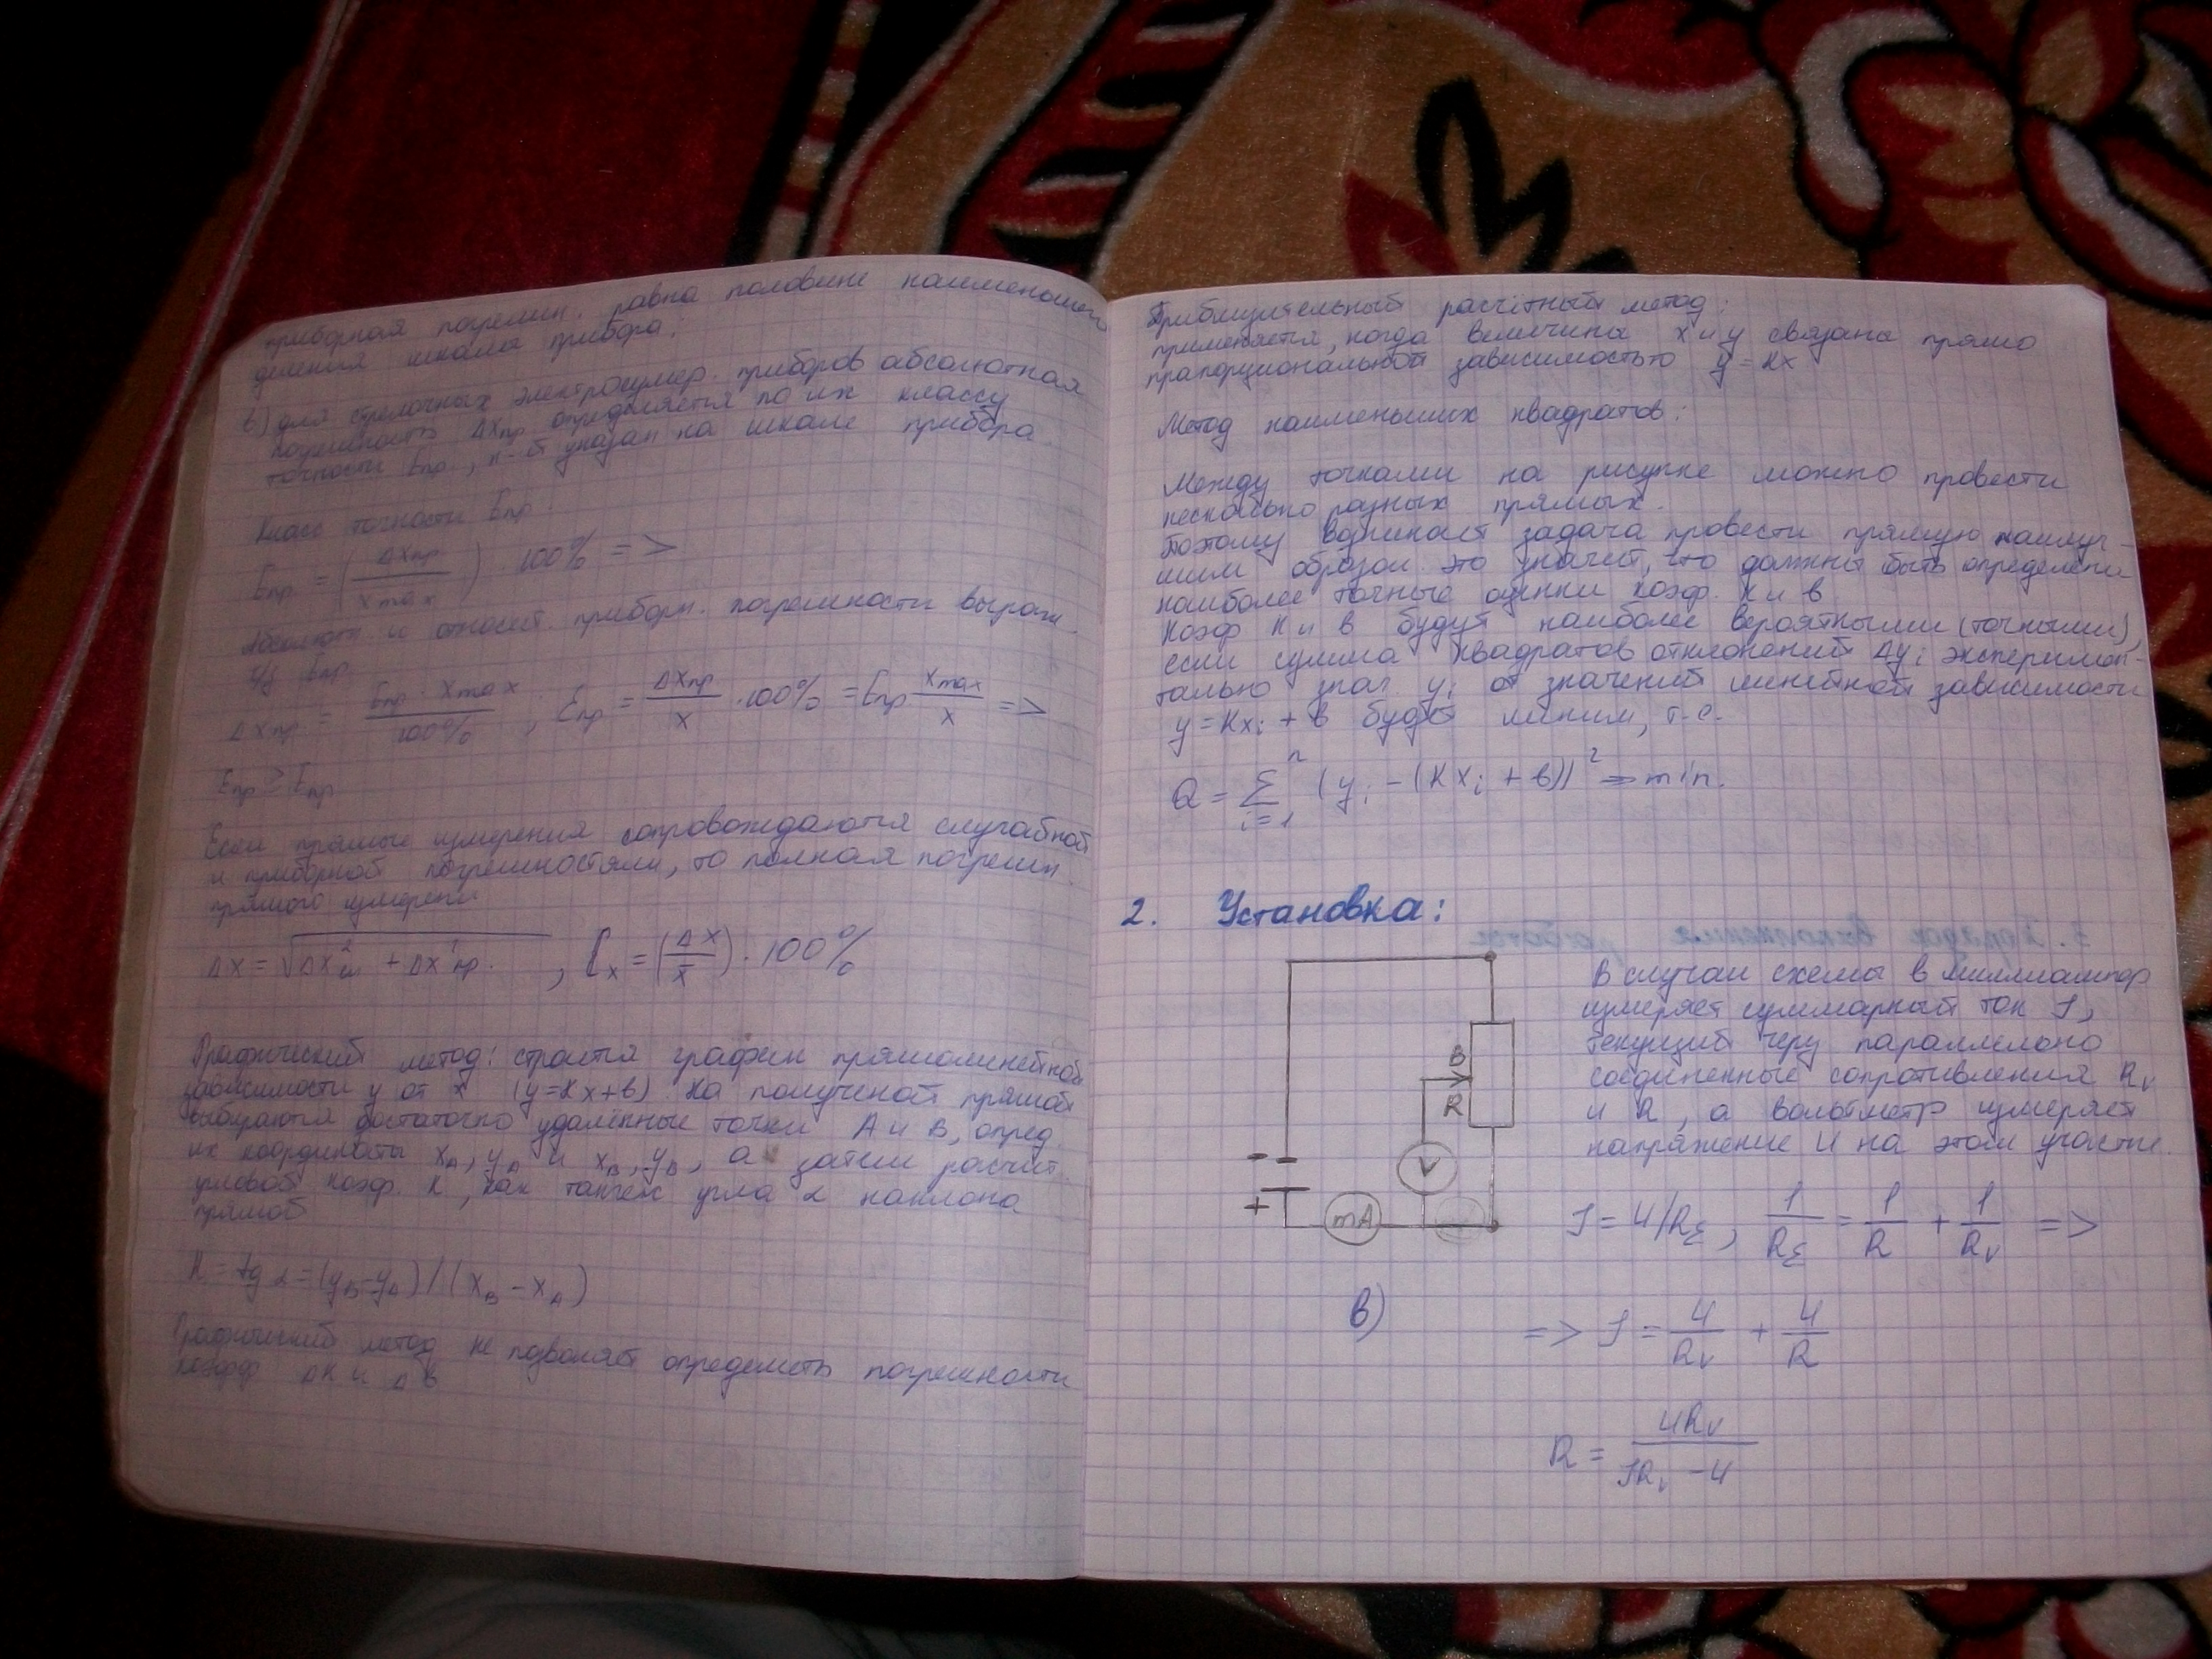 приборная погрешн. равна половине наименьшего
деления шкалы прибора;
в) для стрелочных электроизмер. приборов абсолютная
погрешность ΔXпр определяется по их классу
точности Eпр, к-й указан на шкале прибора.
Класс точности Eпр.
Eпр = (ΔXпр / Xmax) · 100% =>
Абсолютн. и относит. приборн. погрешности выраж.
ч/з Eпр.
ΔXпр = Eпр · Xmax / 100% , Ɛпр = ΔXпр / X · 100% = Eпр Xmax / X =>
Ɛпр > Eпр
Если прямые измерения сопровождаются случайной
и приборной погрешностями, то полная погрешн.
прямого измерени
ΔX = √ΔX²сл + ΔX²пр. , Ɛx = (ΔX / X) · 100%
Графический метод: строится график прямолинейной
зависимости y от x (y=Kx+в). На полученой прямой
выбираются достаточно удалённые точки A и B, опред.
их координаты xA, yA и xB, yB, а затем расчит.
угловой коэф. K, как тангенс угла α наклона
прямой
K = tg α = (yB - yA) / (xB - xA)
Графический метод не позволяет определить погрешности
коэфф ΔK и Δв
Приблизительный расчётный метод:
применяется, когда величина x и y связана прямо
прапорциональной зависимостью y = Kx
Метод наименьших квадратов:
Между точками на рисунке можно провести
несколько разных прямых.
Поэтому возникает задача провести прямую наилуч-
шим образом. это значит, что должны быть определены
наиболее точные оценки коэф. K и в
Коэф K и в будут наиболее вероятными (точными),
если сумма квадратов отклонений Δyi эксперимен-
тально знач. yi от значений линейной зависимости
y = Kxi + в будет миним, т.е.
Q = Σ n i=1 (yi - (Kxi + в))² => min.
2. Установка:
3. Порядок выполнения работы
В случаи схемы в миллиампер
измеряет суммарный ток J,
текущий черз параллельно
соединенные сопротивления Rv
и R, а вольтметр измеряет
напряжение U на этом участке.
B
R
V
-
+
mA
J = U/RΣ, 1/RΣ = 1/R + 1/Rv =>
в)
=> J = U/Rv + U/R
R = URv / (JRv - U)